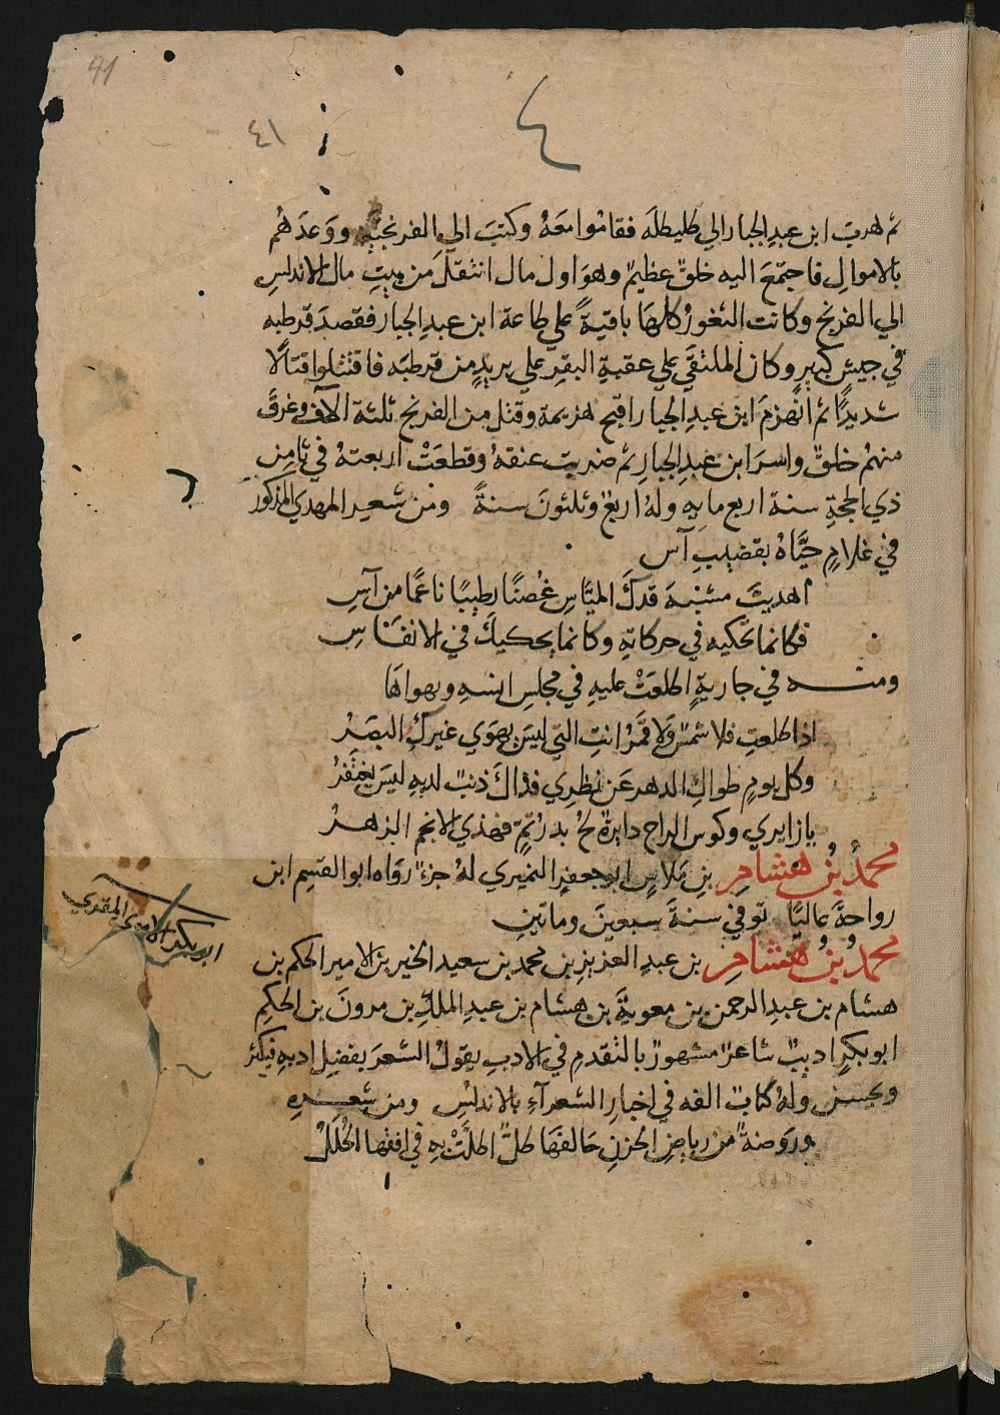 41
٤
٤١
ثم هرب ابن عبدِ الجبار الي طليطلَه فقاموا معَهُ وكتبَ الي الفرنجيه ووَعدَهُم
بالاموالِ فاجتمَعَ اليه خلقٌ عظيمٌ وهوَ اول مال انتقلَ من بيتِ مال الاندلسِ
الي الفرنج وكانت الثغورُ كلهَا باقيةً علي طاعة ابن عبدِ الجبار فقصدَ قرطبه
في جيشٍ كبيرٍ وكان الملتقَي علي عقبةِ البقرِ علي بريدٍ من قرطبَه فاقتتلوا قتالًا
شديدًا ثم انهزمَ ابن عبدِ الجبار اقبح هزيمة وقتل من الفرنج ثلثة الآف وغرقَ
منهمُ خلقٌ واسرَ ابن عبدِ الجبارِ ثم ضربت عنقهُ وقطعَتْ اربعتهُ في ثامن
ذي الحجةِ سنة اربع مايهِ ولهُ اربعٌ وثلثونَ سنةً ومن شعر المهدي المذكور
في غلامٍ حيَّاهُ بقضيبِ آس
اهديتَ مشبهَ قدكَ الميَّاسِ غُصنًا رطيبًا ناعمًا من آسِ
فكانما تحكيه في حركاتهِ وكانما يحكيكَ في الانفَاسِ
ومنه في جاريةٍ اطلعَتْ عليهِ في مجلسِ انسهِ ويهواهَا
اذا طلعتِ فلا شمسٌ وَلا قمَرٌ انتِ التي ليسَ يهوَي غيركِ البصَرُ
وكل يومٍ طواكِ الدهر عَن نظرِي فذاكَ ذنبٌ لديهِ ليسَ يغتفرُ
يا زايري وكوس الراح دايرةٌ لُح بدرُ تمٍّ فهذي الانجم الزهرُ
محمدُ بنُ هشامِ بنِ مَلاسٍ ابو جعفرٍ النميري لهُ جزءٌ روَاه ابو القسِم ابن
رواحةَ عاليًا توفي سنةَ سبعينَ وماتينِ
محمدُ بنُ هشامِ بن عبدِ العزيزِ بن محمد بن سعيد الخير بن الامير الحكم بن
هشام بن عبدِ الرحمن بن معويةَ بن هشام بن عبدِ الملكِ بن مرونَ بن الحكمِ
ابو بكرٍ اديبٌ شاعرٌ مشهورٌ بالتقدمِ في الادبِ يقولُ الشعرَ بفضلِ ادبهِ فيكثر
ويحسن ولهُ كتابٌ الفه في اخبارِ الشعرآءِ بالاندلسِ ومن شعرهِ
وروَضةٌ من رياضِ الحزنِ حَالفهَا طلٌّ اطلَّتْ بهِ في افقها الحُلَلُ
ابو بكر الاموي